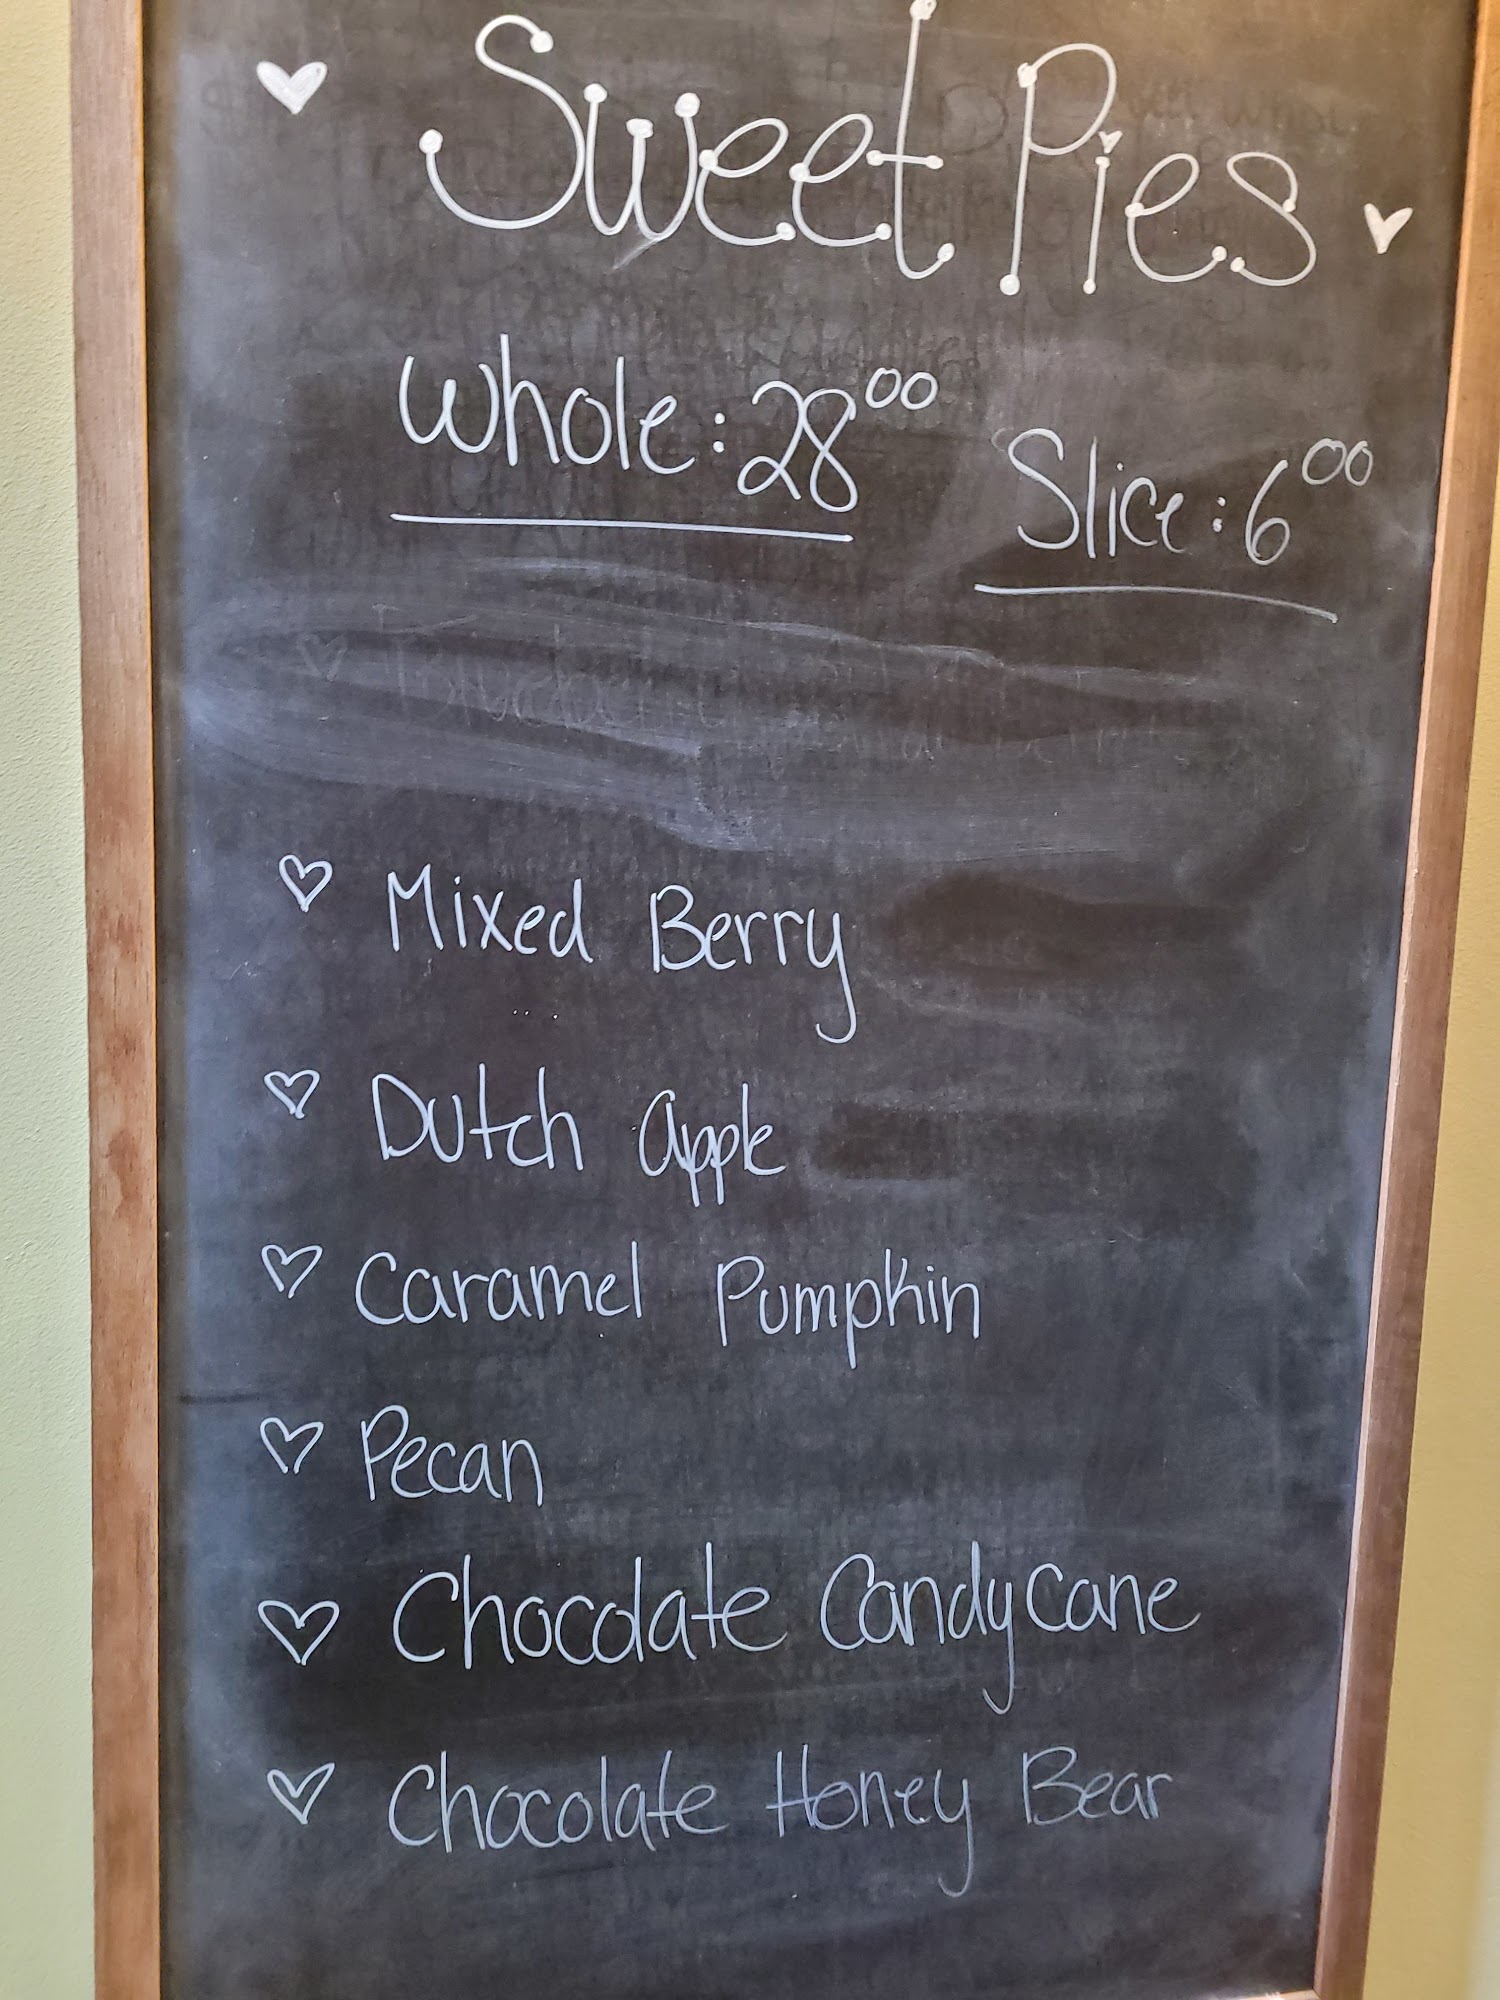 Sweet Pies
Whole: 28⁰⁰
Slice: 6⁰⁰
Mixed Berry
Dutch apple
Caramel Pumpkin
Pecan
Chocolate Candy Cane
Chocolate Honey Bear